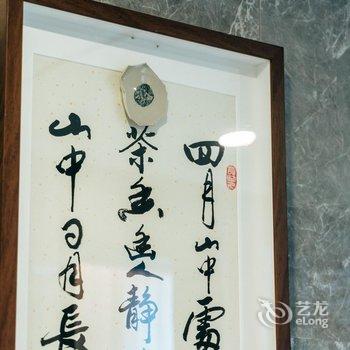 四月山中
茶香幽人静
山中日月長
艺龙
eLong